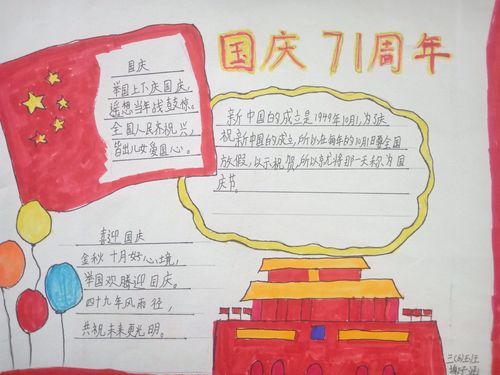 国庆71周年
国庆
举国上下庆国庆,
遥想当年战鼓惊。
全国人民齐祝兴,
皆出儿女爱国心。
新中国的成立是1949年10月1,为了庆
祝新中国的成立,所以在每年的10月1日要全国
放假,以示祝贺,所以就将那一天称为国
庆节。
喜迎国庆
金秋十月好心境,
举国欢腾迎国庆。
四十九年风雨径,
共祝未来更光明。
三(5)班